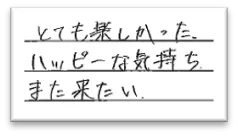 とても楽しかった。
ハッピーな気持ち
また来たい.